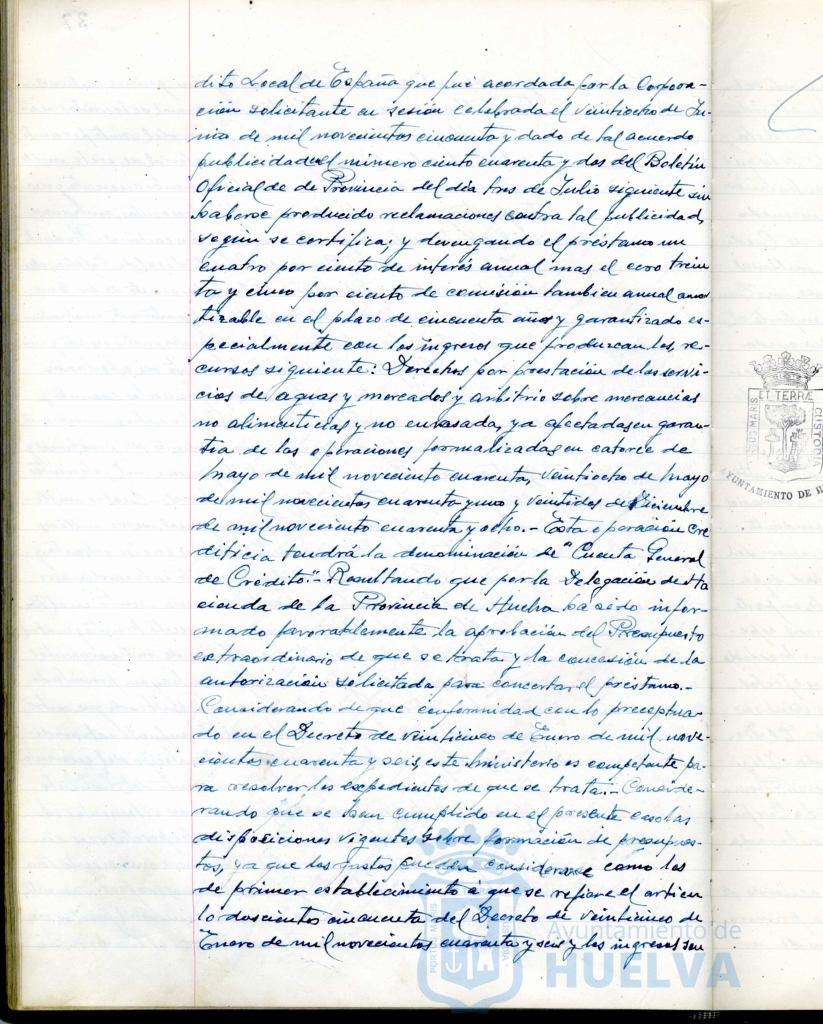 dito Local de España que fué acordada por la Corpora-
ción solicitante en sesión celebrada el veintiocho de Ju-
nio de mil novecientos cincuenta y dado de tal acuerdo
publicidad en el número ciento cuarenta y dos del Boletín
Oficial de de Provincia del día tres de Julio siguiente sin
haberse producido reclamaciones contra tal publicidad,
según se certifica; y devengando el préstamo un
cuatro por ciento de interés anual mas el cero trein
ta y cinco por ciento de comisión tambien anual amor
tizable en el plazo de cincuenta años y garantizado es-
pecialmente con los ingresos que produzcan los re-
cursos siguiente: Derechos por prestación de los servi-
cios de aguas y mercados y arbitrio sobre mercancias
no alimenticias y no envasada, ya afectadas en garan-
tia de las operaciones formalizadas en catorce de
Mayo de mil noveciento cuarenta, veintiocho de Mayo
de mil novecientos cuarenta y uno y veintidos de Diciembre
de mil noveciento cuarenta y ocho.- Esta operación cre
diticia tendrá la denominación de "Cuenta General
de Crédito".- Resultando que por la Delegación de Ha
cienda de la Provincia de Huelva ha sido infor-
mado favorablemente la aprobación del Presupuesto
extraordinario de que se trata y la concesión de la
autorización solicitada para concertar el préstamo.-
Considerando de que conformidad con lo preceptua-
do en el Decreto de veinticinco de Enero de mil nove-
cientos cuarenta y seis, este Ministerio es competente pa-
ra resolver los expedientes de que se trata.- Conside-
rando que se han cumplido en el presente caso las
disposiciones vigentes sobre formación de presupues-
tos, ya que los gastos pueden considerarse como los
de primer establecimiento a que se refiere el articu
lo doscientos cincuenta del Decreto de veinticinco de
Enero de mil novecientos cuarenta y seis y los ingresos son
ET TERRÆ
CUSTODIA
AYUNTAMIENTO DE H
Ayuntamiento de
HUELVA